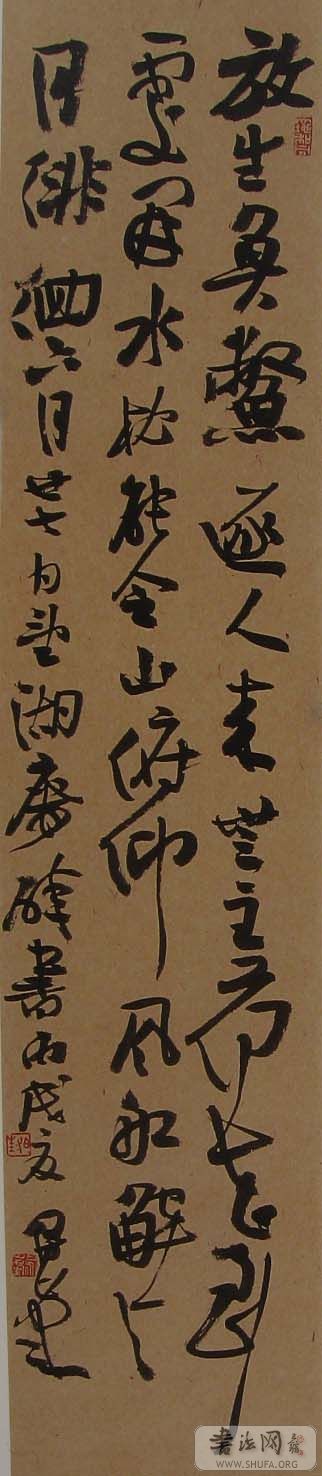 放生魚鱉逐人来無主荷花到
處開水枕能令山俯仰風船解与
月徘徊六月廿七日望湖
書丙戌夏
書法网
WWW.SHUFA.ORG